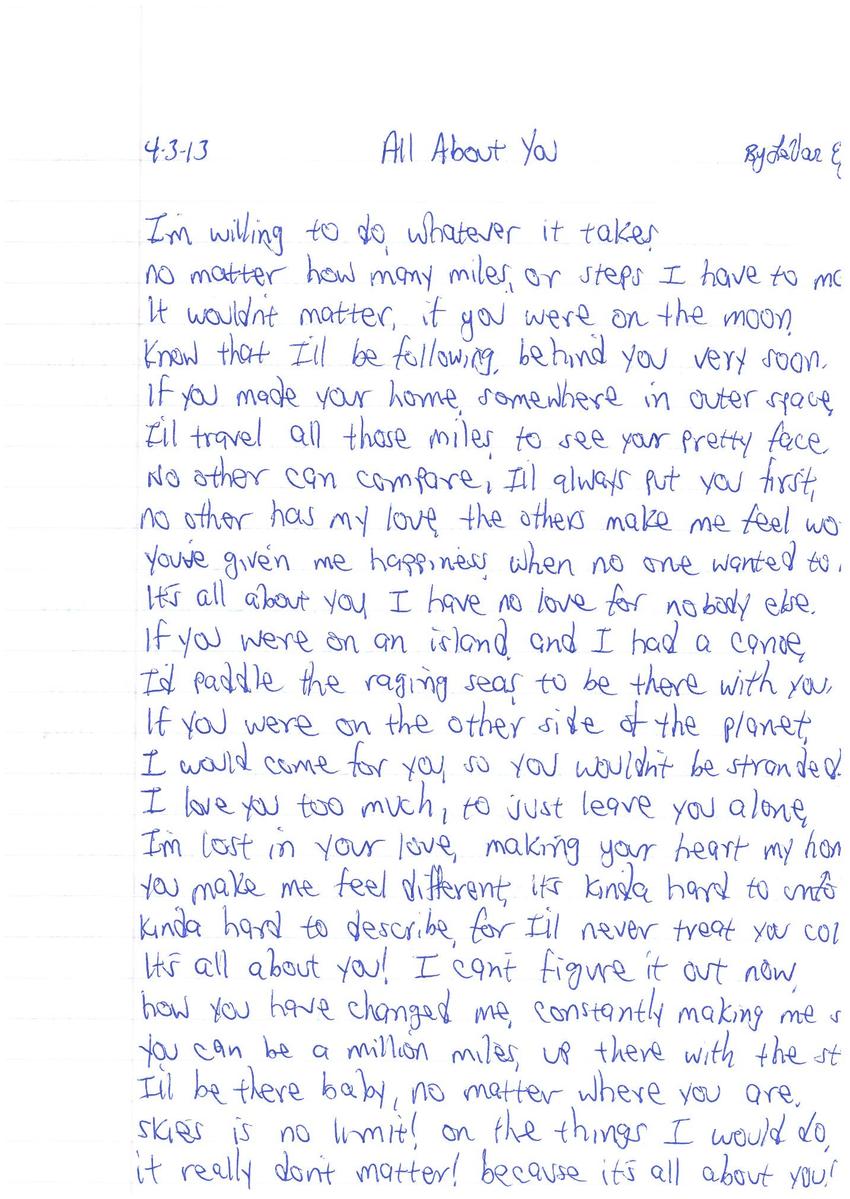 4-3-13 All About You By LaVar
I'm willing to do, whatever it takes,
no matter how many miles, or steps I have to
It wouldn't matter, if you were on the moon,
Know that I'll be following, behind you very soon.
If you made your home, somewhere in outer space,
I'll travel all those miles, to see your pretty face.
No other can compare, I'll always put you first,
no other has my love, the others make me feel wo
you've given me happiness, when no one wanted to
It's all about you, I have no love for nobody else.
If you were on an island, and I had a canoe,
I'd paddle the raging seas, to be there with you.
If you were on the other side of the planet,
I would come for you, so you wouldn't be stranded.
I love you too much, to just leave you alone,
I'm lost in your love, making your heart my hom
You make me feel different, it's kinda hard to unfo
kinda hard to describe, for I'll never treat you col
It's all about you! I can't figure it out now,
how you have changed me, constantly making me s
you can be a million miles, up there with the st
I'll be there baby, no matter where you are.
skies is no limit! on the things I would do,
it really don't matter! because it's all about you!